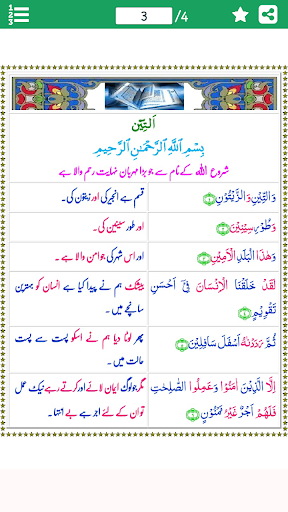 1
2
3
3
/4
اَلتِّيْن
بِسْمِ اللَّهِ الرَّحْمَٰنِ الرَّحِيْمِ
شروع اللہ کے نام سے جو بڑا مہربان نہایت رحم والا ہے
وَالتِّيْنِ وَالزَّيْتُوْنِ ۝١
قسم ہے انجیر کی اور زیتون کی۔
وَطُوْرِ سِيْنِيْنَ ۝٢
اور طور سینین کی۔
وَهٰذَا الْبَلَدِ الْاَمِيْنِ ۝٣
اور اس شہر کی جو امن والا ہے۔
لَقَدْ خَلَقْنَا الْاِنْسَانَ فِيْٓ اَحْسَنِ
تَقْوِيْمٍ ۝٤
بیشک ہم نے پیدا کیا ہے انسان کو بہترین
سانچے میں۔
ثُمَّ رَدَدْنٰهُ اَسْفَلَ سَافِلِيْنَ ۝٥
پھر لوٹا دیا ہم نے اسکو پست سے پست
حالت میں۔
اِلَّا الَّذِيْنَ اٰمَنُوْا وَعَمِلُوا الصّٰلِحٰتِ
فَلَهُمْ اَجْرٌ غَيْرُ مَمْنُوْنٍ ۝٦
مگر جو لوگ ایمان لائے اور کرتے رہے نیک عمل
تو ان کے لئے اجر ہے بے انتہا۔